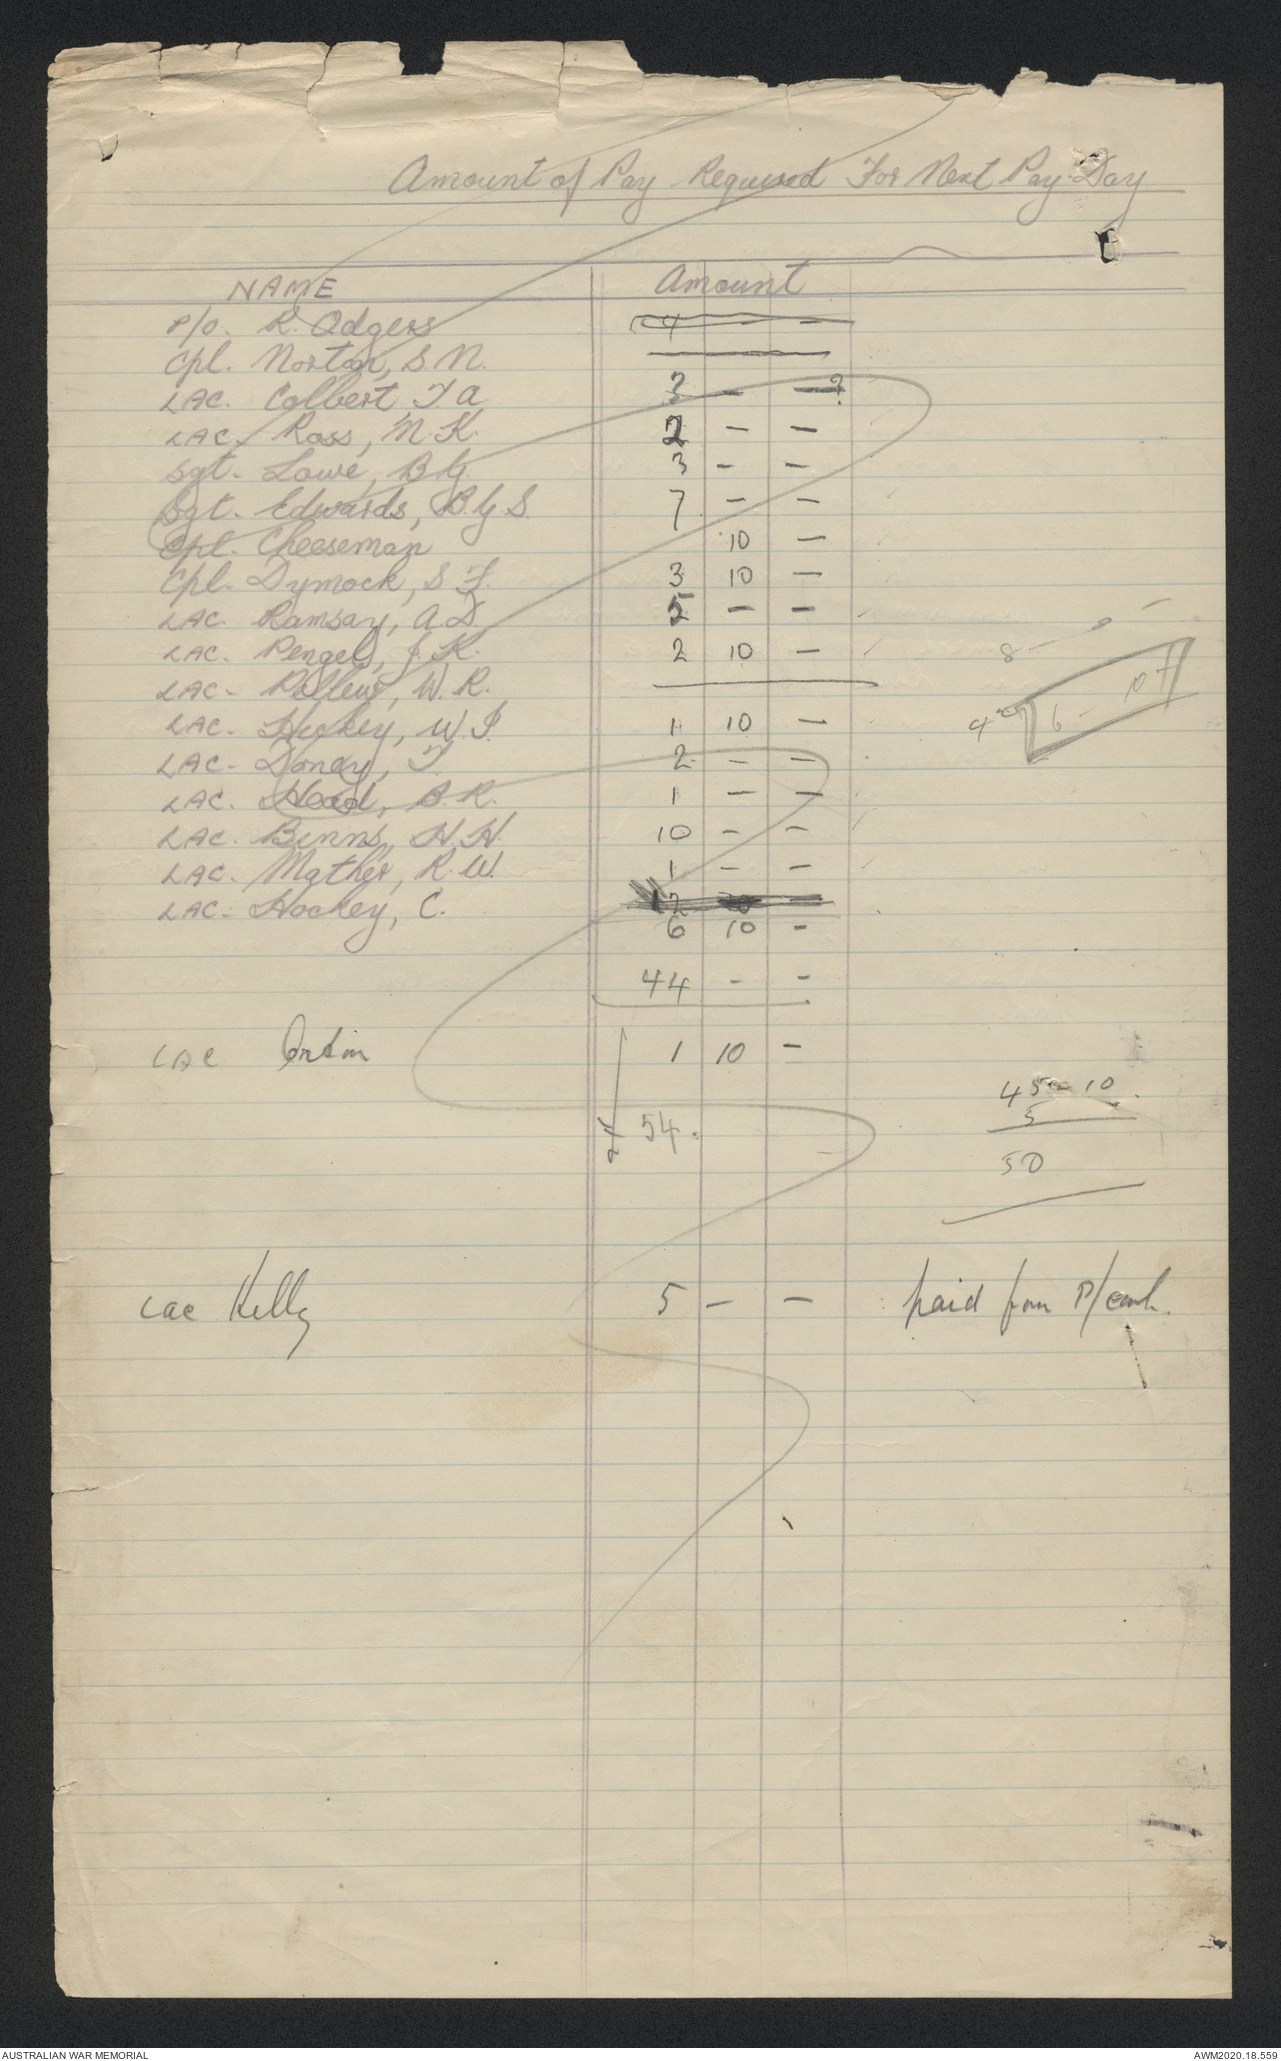 Amount of Pay Required For Next Pay Day
NAME Amount
P/O. K. Odgers 4 - -
Cpl. Norton, S.N. ———
LAC. Colbert T.A 3 - - ?
LAC. Ross, M.K. 2 - -
Sgt. Lowe, B.G. 3 - -
Sgt. Edwards, B.G.S. 7 - -
Cpl. Cheeseman 10 -
Cpl. Dymock, S.F. 3 10 -
LAC. Ramsay, A.D. 5 - -
LAC. Pengels, J.K. 2 10 -
LAC. W.R. ———
LAC. Heckey, W.J. 1 10 -
LAC. Doney, T. 2 - -
LAC. Head, B.R. 1 - -
LAC. Binns, H.H. 10 - -
LAC. Mather, R.W. 1 - -
LAC. Hockey, C. 12 10 -
6 10 -
44 - -
LAC 1 10 -
54.
8 -
4
6 - 10
45 - 10
5
50
LAC Kelly 5 - - paid from P/cash.
AUSTRALIAN WAR MEMORIAL AWM2020.18.559